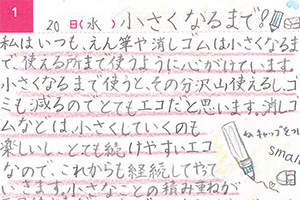 1
20 日(水 ) 小さくなるまで!
私はいつも、えん筆や消しゴムは小さくなるま
で、使える所まで使うように心がけています。
小さくなるまで使うと、その分沢山使えるし、ゴ
ミも減るのでとてもエコだと思います。消しゴ
ムなどは、小さくしていくのも
楽しいし、とても続けやすいエコ
なので、これからも経続してやって
いきます。小さなことの積み重ねが
キャップを
small